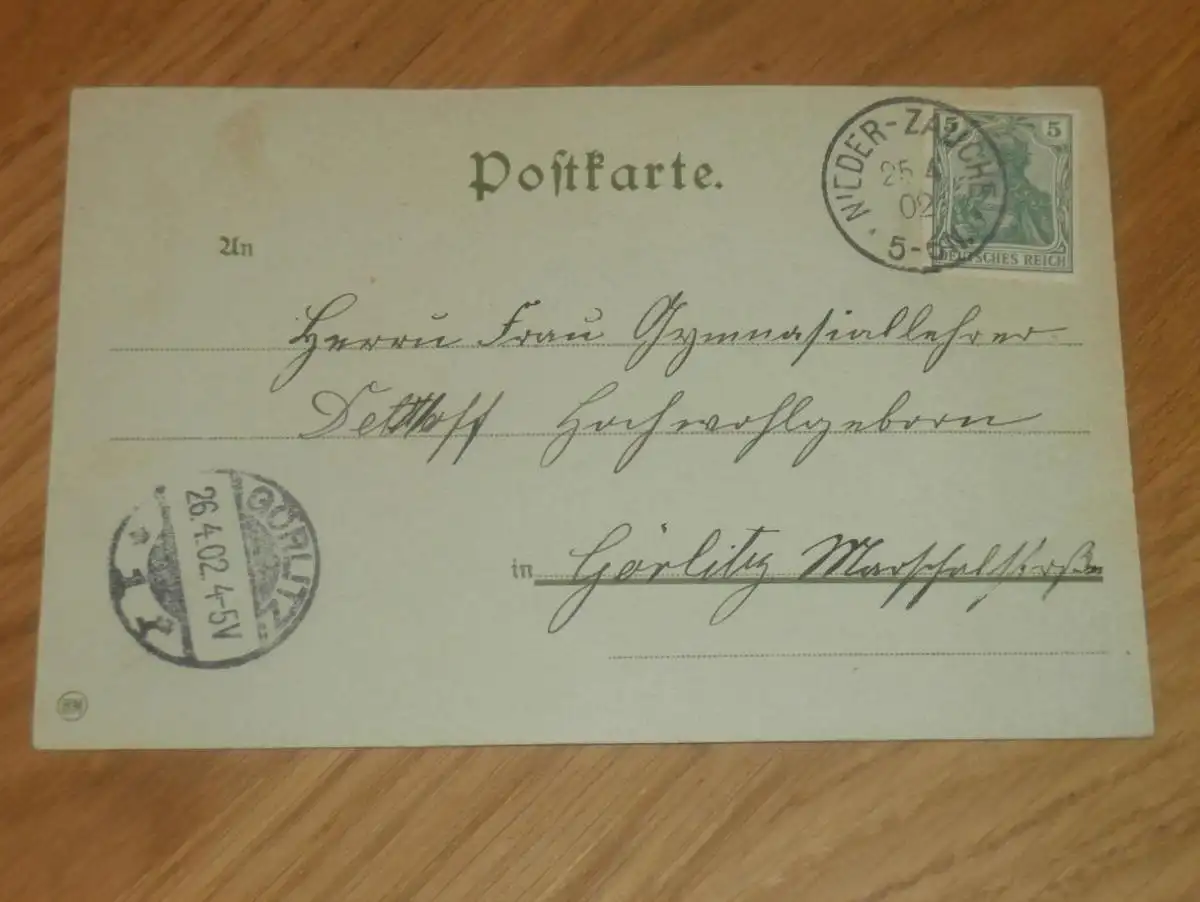 Postkarte.
NIEDER-ZAUCHE
25 4
02
5-6N.
5 5
DEUTSCHES REICH
An
Herrn Frau Gymnasiallehrer
Hochwohlgeborn
GÖRLITZ
26.4.02.4-5V
* 1 *
in Görlitz